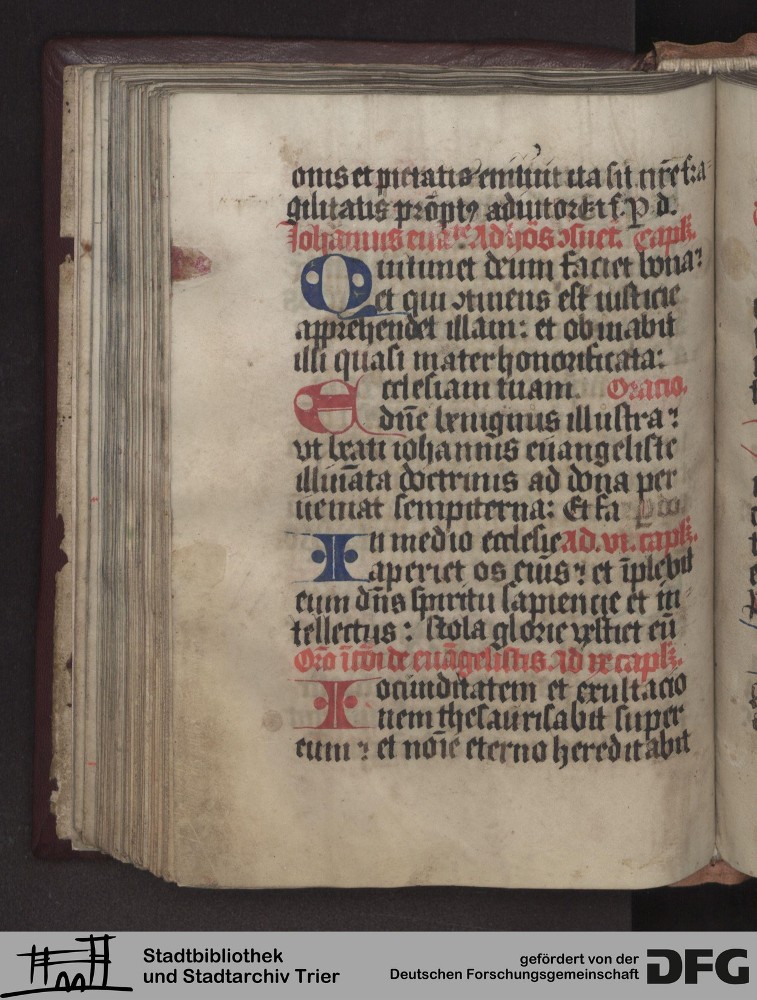 onis et pietatis eminuit ita sit nr̄e fra
gilitatis prōptꝰ adiutor Et f. P d.
Johannis eua Ad hōs ɔsuet. Capl.
Qui timet deum faciet bona:
et qui ɔtinens est iusticie
apprehendet illam: et obuiabit
illi quasi mater honorificata:
Ecclesiam tuam. Oracio.
dn̄e benignus illustra:
vt beati iohannis euangeliste
illuīata doctrinis ad dona per
ueniat sempiterna: Et fa P do
In medio ecclesie Ad .vi. capl.
aperiet os eius: et īpleuit
eum dn̄s spiritu sapiencie et in
tellectus: Stola glorie vestiet eū
Orō de euāgelistis Ad ix capl.
Iocunditatem et exultacio
nem thesaurisabit super
eum: et noīe eterno hereditabit
Stadtbibliothek
und Stadtarchiv Trier
gefördert von der
Deutschen Forschungsgemeinschaft
DFG